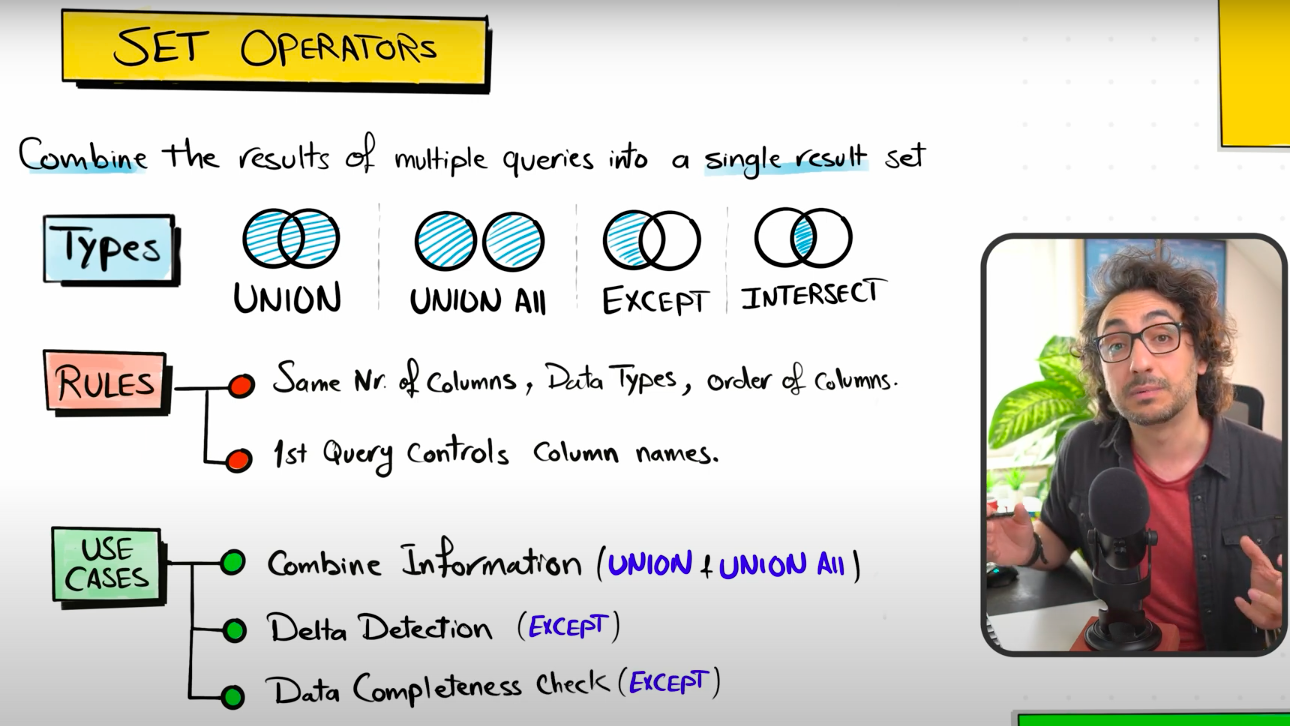 SET OPERATORS
Combine the results of multiple queries into a single result set
Types
UNION
UNION All
EXCEPT
INTERSECT
RULES
Same Nr. of Columns, Data Types, order of columns.
1st Query Controls Column names.
USE
CASES
Combine Information (UNION + UNION All)
Delta Detection (EXCEPT)
Data Completeness Check (EXCEPT)